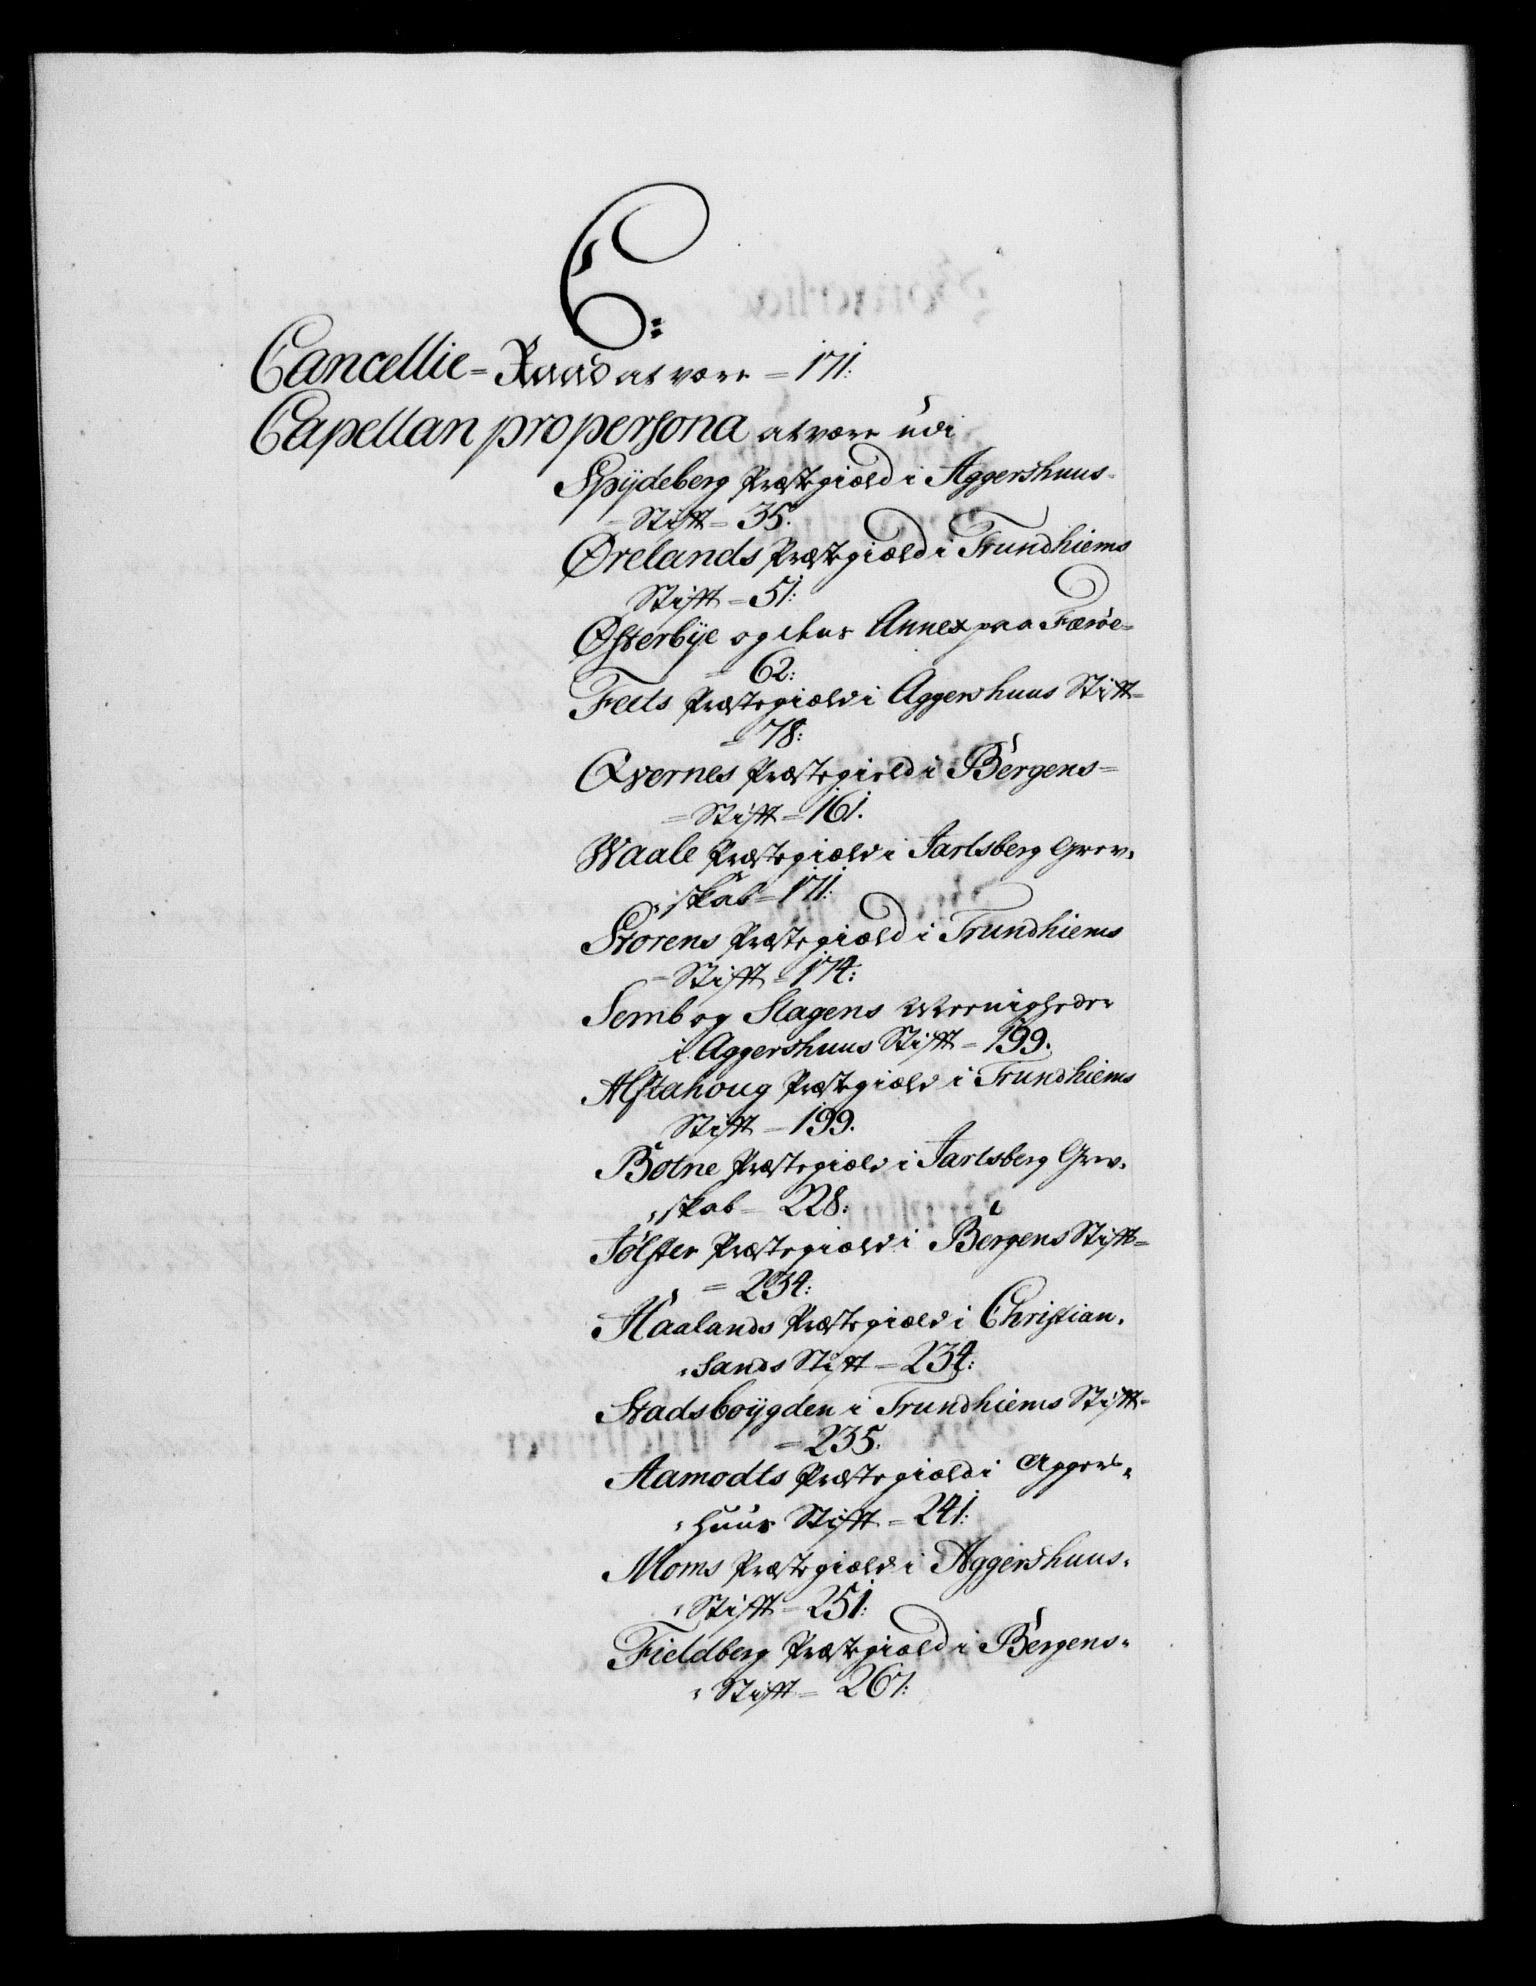 C:
Cancellie= Raad at være = 171:
Capellan pro persona at være udi
Spÿdeberg Præstegiæld i Aggershuus=
= Stift = 35.
Ørelands Præstegiæld i Trundhiems
Stift = 51:
Østerbÿe og dens Annex paa Færøe=
= 62:
Feets Præstegiæld i Aggershuus Stift=
= 78:
Qvernes Præstegield i Bergens=
= Stift = 161.
Waale Præstegiæld i Jarlsberg Grev,
, skab = 171:
Störens Præstegiæld i Trundhiems
= Stift = 174:
Semb og Slagens Meenigheder
i Aggershuus Stift = 199.
Alstahoug Præstegiæld i Trundhiems
Stift = 199.
Botne Præstegiæld i Jarlsberg Grev,
, skab = 228:
Jölster Præstegiæld i Bergens Stift=
= 234:
Haalands Præstegiæld i Christian,
, sands Stift = 234:
Stadsboÿgden i Trundhiems Stift=
= 235.
Aamodts Præstegiæld i Aggers,
, huus Stift = 241:
Moms Præstegiæld i Aggershuus,
, Stift = 251:
Fieldberg Præstegiæld i Bergens,
, Stift = 267: